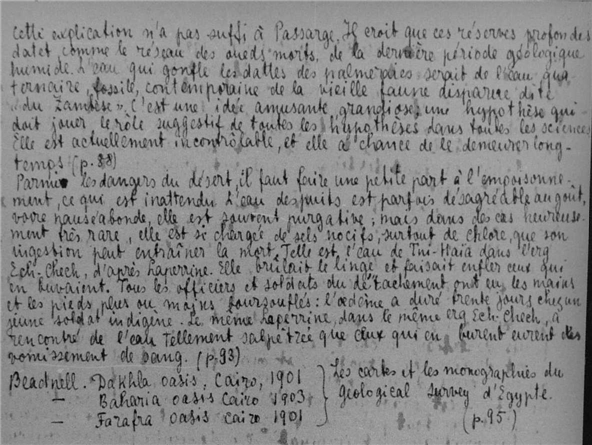 Cette explication n'a pas suffi à Passarge. Il croit que ces réserves profondes
datet, comme le réseau des oueds morts, de la dernière période géologique
humide. L'eau qui gonfle les dattes des palmeraies serait de l'eau qua-
ternaire, fossile, contemporaine de la vieille faune disparue dite
"du Zambèse". C'est une idée amusante, grandiose; une hypothèse qui
doit jouer le rôle suggestif de toutes les hypothèses dans toutes les sciences
Elle est actuellement incontrôlable, et elle a chance de le demeurer long-
temps (p. 88)
Parmi les dangers du désert, il faut faire une petite part à l'empoisonne-
ment, ce qui est inattendu. L'eau des puits est parfois désagréable au goût,
voire nauséabonde, elle est souvent purgative; mais dans des cas heureuse-
ment très rare, elle est si chargée de sels nocifs, surtout de chlore, que son
ingestion peut entraîner la mort. Telle est l'eau de Tni-Haïa dans l'erg
Ech-Chech, d'après Laperrine. Elle brûlait le linge et faisait enfler ceux qui
en buvaient. Tous les officiers et soldats du détachement ont eu les mains
et les pieds plus ou moins boursouflés: l'œdème a duré trente jours chez un
jeune soldat indigène. Le même Laperrine, dans le même erg Ech-Chech, a
rencontré de l'eau tellement salpêtrée que ceux qui en burent eurent des
vomissement de sang. (p. 93)
Beadnell. Dakhla oasis. Cairo, 1901
— Baharia oasis Cairo 1903
— Farafra oasis Cairo 1901
Les cartes et les monographies du
Geological Survey d'Egypte.
(p. 95)